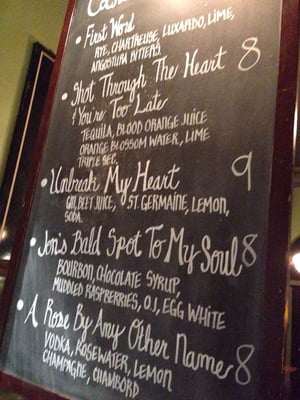 • First Word
RYE, CHARTREUSE, LUXARDO, LIME,
ANGOSTURA BITTERS
• Shot Through The Heart 8
& You're Too Late
TEQUILA, BLOOD ORANGE JUICE
ORANGE BLOSSOM WATER, LIME
TRIPLE SEC.
• Unbreak My Heart 9
GIN, BEET JUICE, ST. GERMAINE, LEMON,
SODA.
• Jon's Bald Spot To My Soul 8
BOURBON, CHOCOLATE SYRUP,
MUDDLED RASPBERRIES, O.J, EGG WHITE
• A Rose By Any Other Name 8
VODKA, ROSEWATER, LEMON
CHAMPAGNE, CHAMBORD